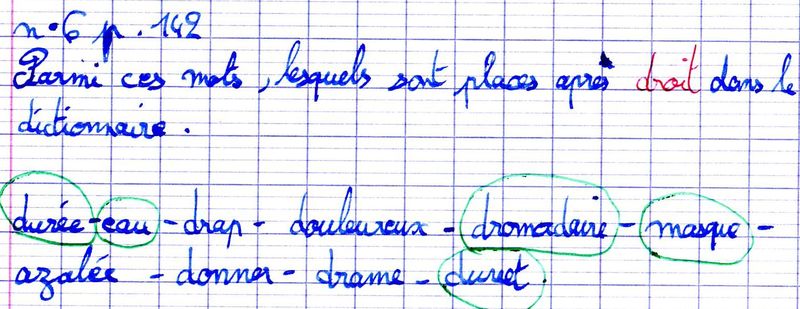 n°6 p. 142
Parmi ces mots, lesquels sont placés après droit dans le
dictionnaire.
durée - eau - drap - douleureux - dromadaire - masque -
azalée - donner - drame - duvet.